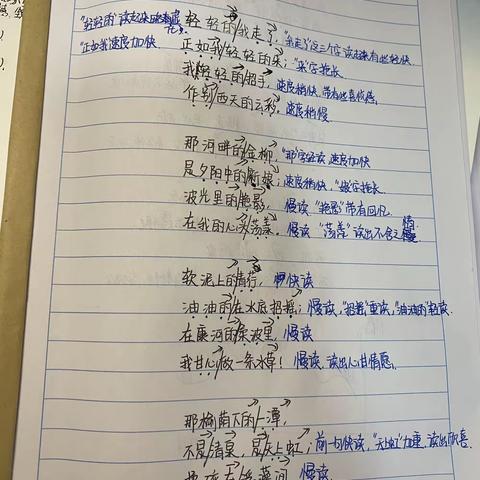 "轻轻的"读起来
轻轻的我走了,"我走了"这三个字读起来有些轻快
"正如我"速度加快
正如我轻轻的来;"来"字拖长
我轻轻的招手,速度稍快,带有些喜悦感
作别西天的云彩,速度稍慢
那河畔的金柳,"那"字轻读 速度加快
是夕阳中的新娘;速度稍快,"娘"字拖长
波光里的艳影,慢读 "艳影"带有回忆
在我的心头荡漾。慢读 "荡漾"读出不舍之情
软泥上的青荇,快读
油油的在水底招摇;慢读,"招摇"重读,"油油的"轻读
在康河的柔波里,慢读
我甘心做一条水草!慢读,读出心甘情愿
那榆荫下的一潭,
不是清泉,是天上虹;前一句快读,"天上虹"加重,读出欣喜
慢读